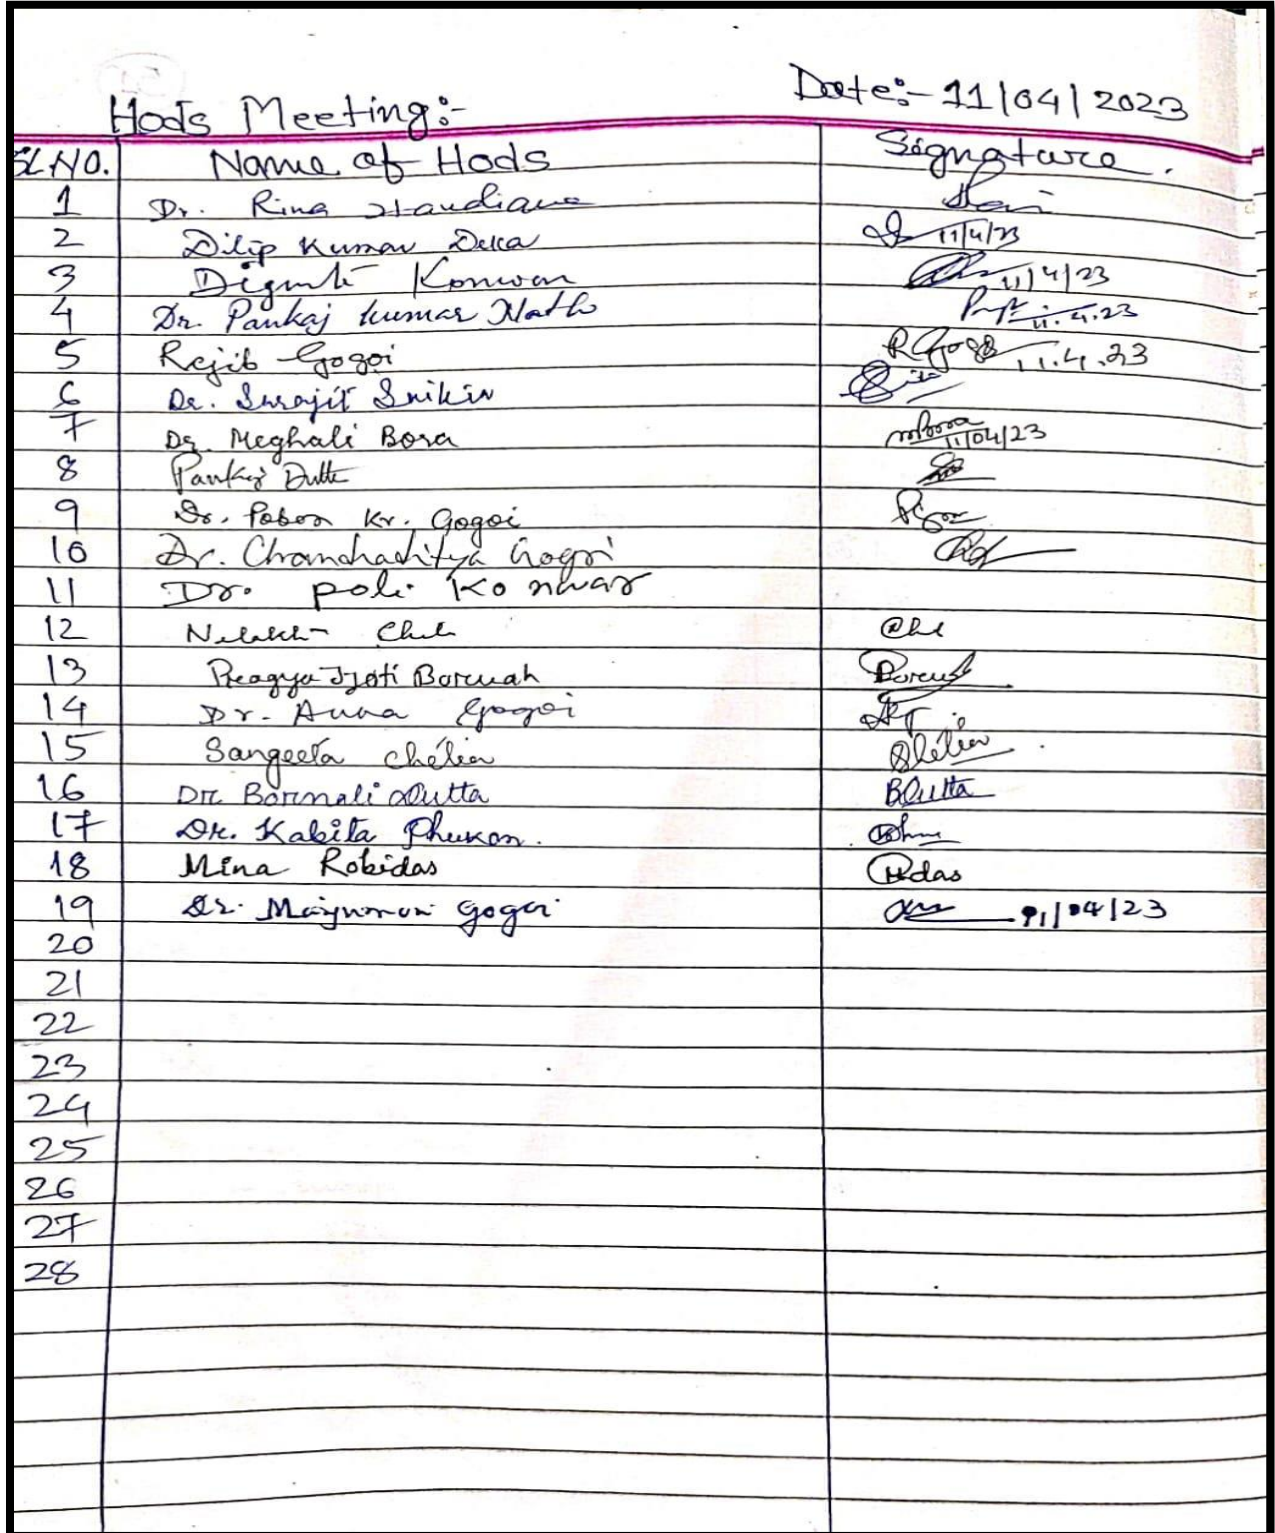 Hods Meeting:-
Date:- 11/04/2023
SL NO. Name of Hods Signature.
1 Dr. Rina Handique
2 Dilip Kumar Deka 11/4/23
3 Diganta Konwar 11/4/23
4 Dr. Pankaj Kumar Nath 11.4.23
5 Rajib Gogoi R Gogoi 11.4.23
6 Dr. Surajit Saikia
7 Dr. Meghali Bora mBora 11/04/23
8 Pankaj Dutta
9 Dr. Pabon Kr. Gogoi
10 Dr. Chandraditya Gogoi
11 Dr. poli Konwar
12
13 Pragya Jyoti Boruah
14 Dr. Anna Gogoi
15 Sangeeta Chetia Chetia
16 Dr. Bornali Dutta BDutta
17 Dr. Kabita Phukon.
18 Mina Robidas Rdas
19 Dr. Gogoi 11/04/23
20
21
22
23
24
25
26
27
28